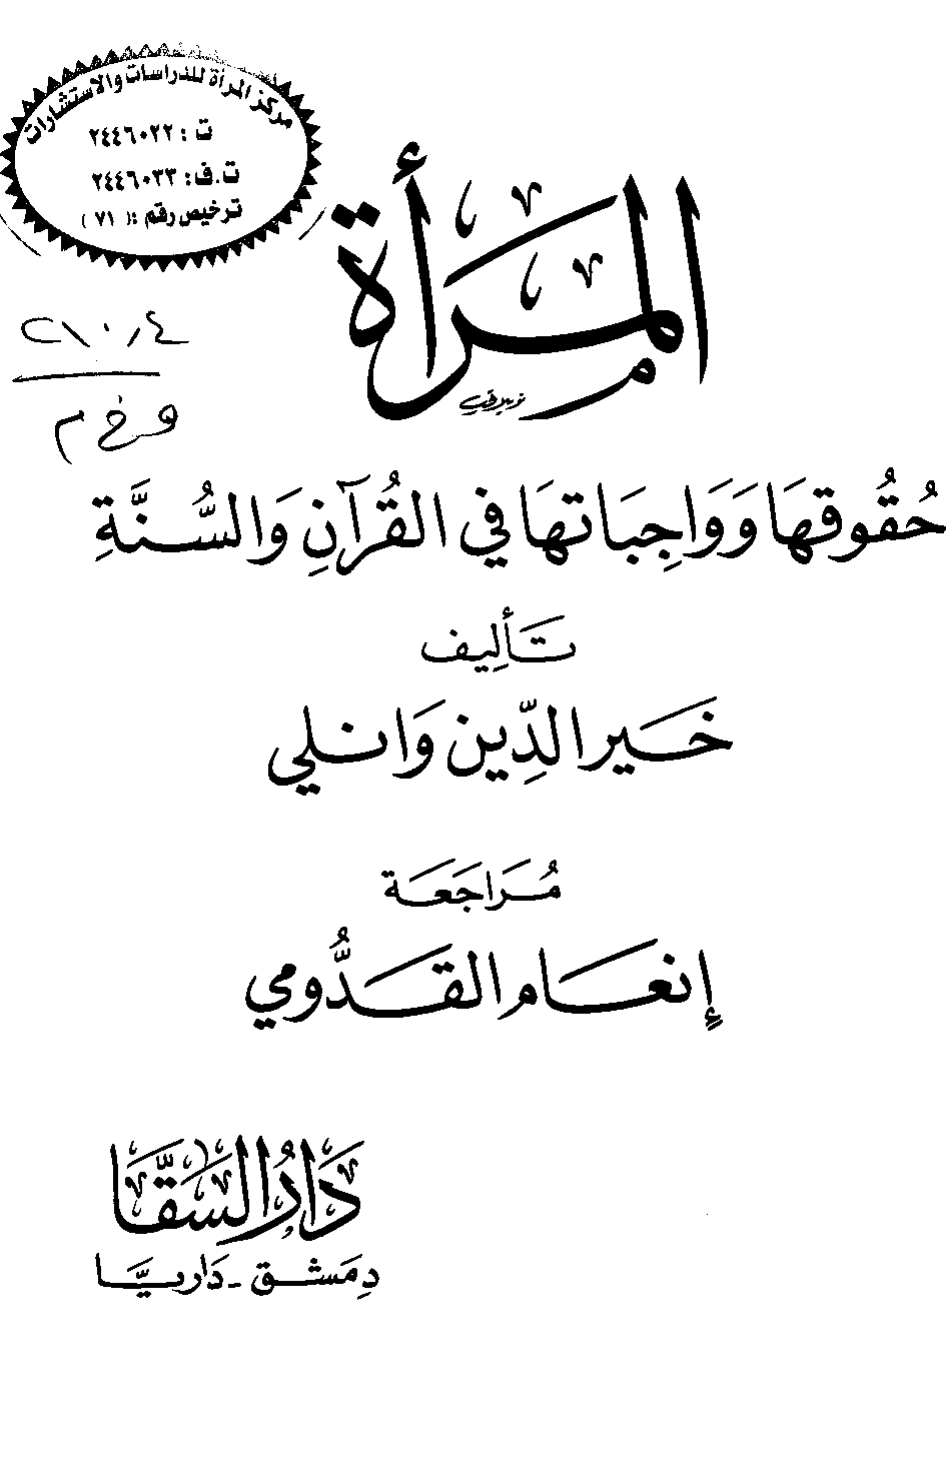 مركز المرأة للدراسات والاستشارات
ت : ٢٤٤٦٠٢٢
ت.ف: ٢٤٤٦٠٣٣
ترخيص رقم :( ٧١ )
٢١٠,٤
و خ م
المرأة
حُقُوقهَا وَوَاجِبَاتهَا في القُرآنِ وَالسُّنَّةِ
تَأليف
خَير الدِّين وَانلي
مُرَاجَعَة
إنعَام القَدُّومي
دَارُ السَقَّا
دِمَشق - دَاريَّا